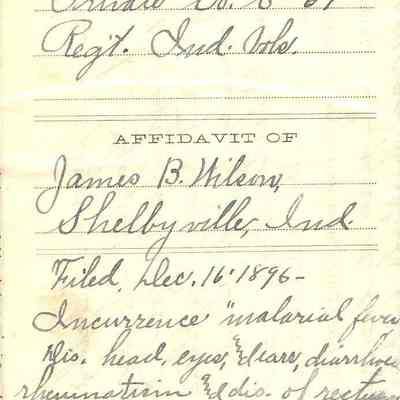 Private Co.
Regt. Ind. Vols.
AFFIDAVIT OF
James B. Wilson,
Shelbyville, Ind.
Filed, Dec. 16. 1896-
Incurrence "malarial fever
dis. head, eyes, & ears, diarrhoea
rheumatism & dis. of rectum